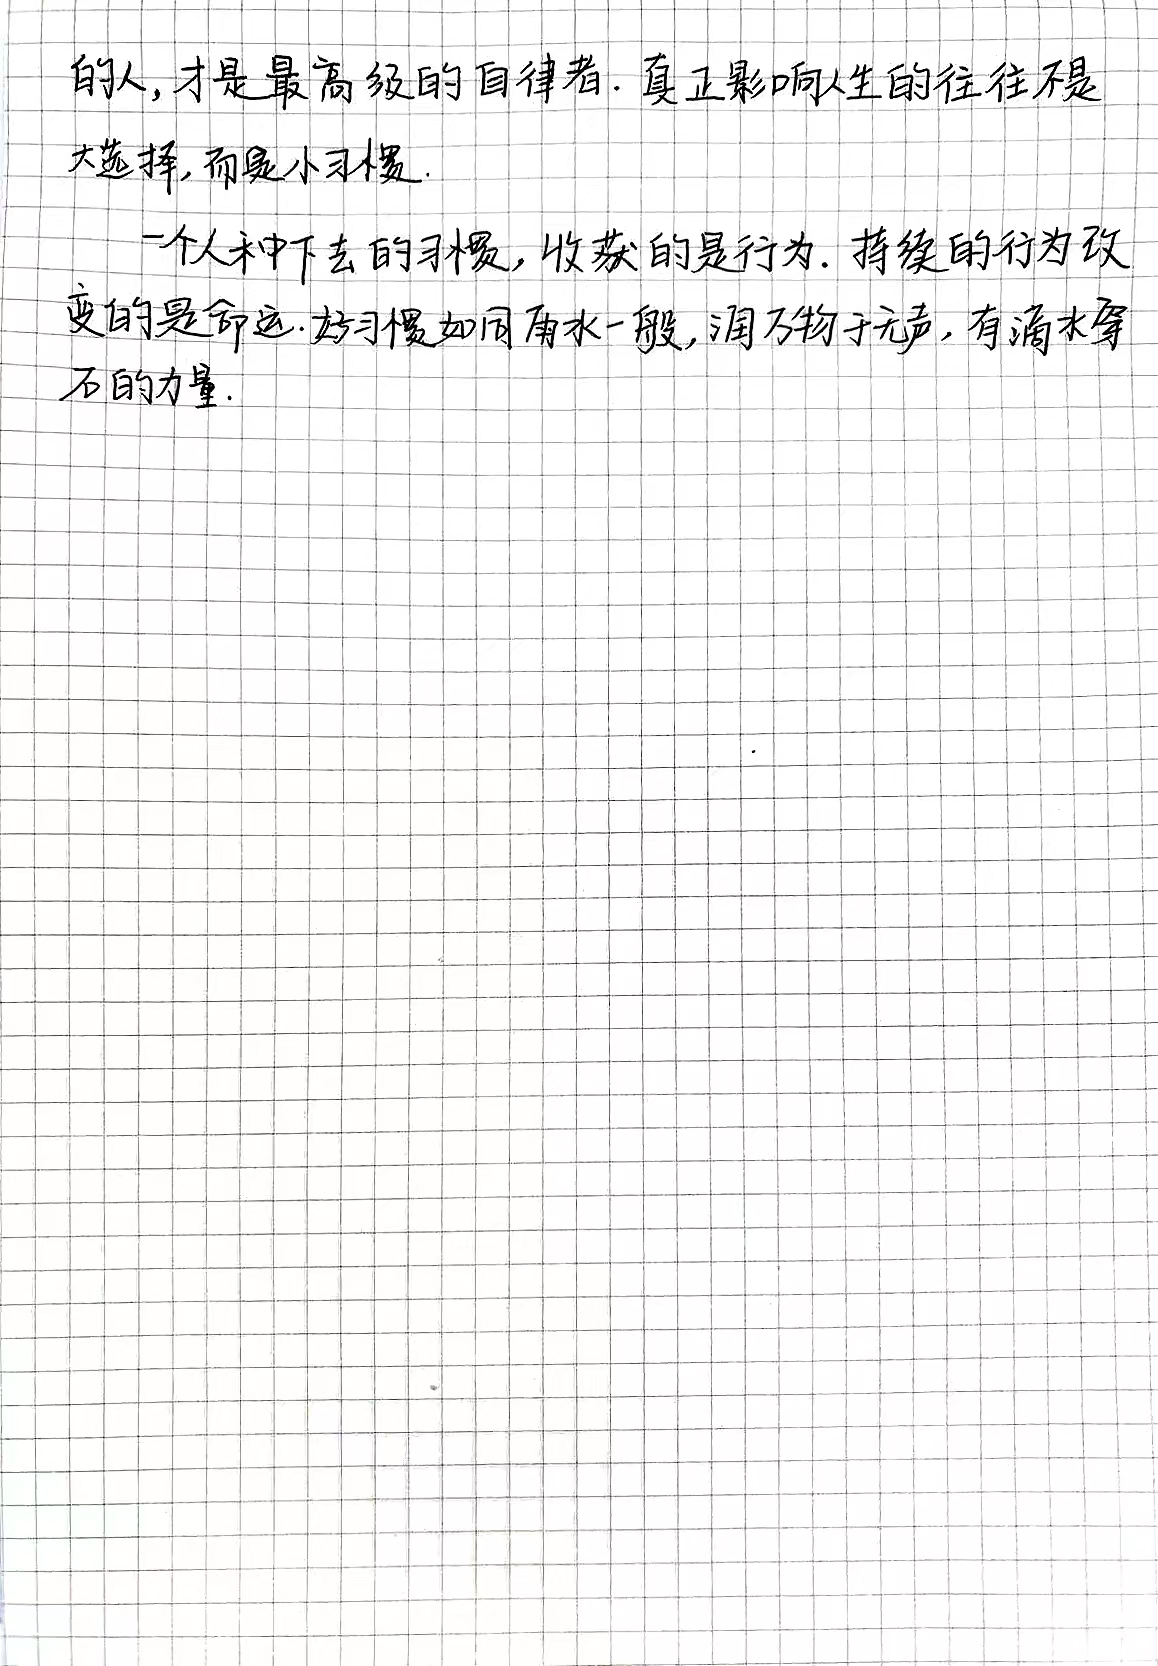 的人,才是最高级的自律者.真正影响人生的往往不是
大选择,而是小习惯.
一个人种下去的习惯,收获的是行为.持续的行为改
变的是命运.好习惯如同雨水一般,润万物于无声,有滴水穿
石的力量.